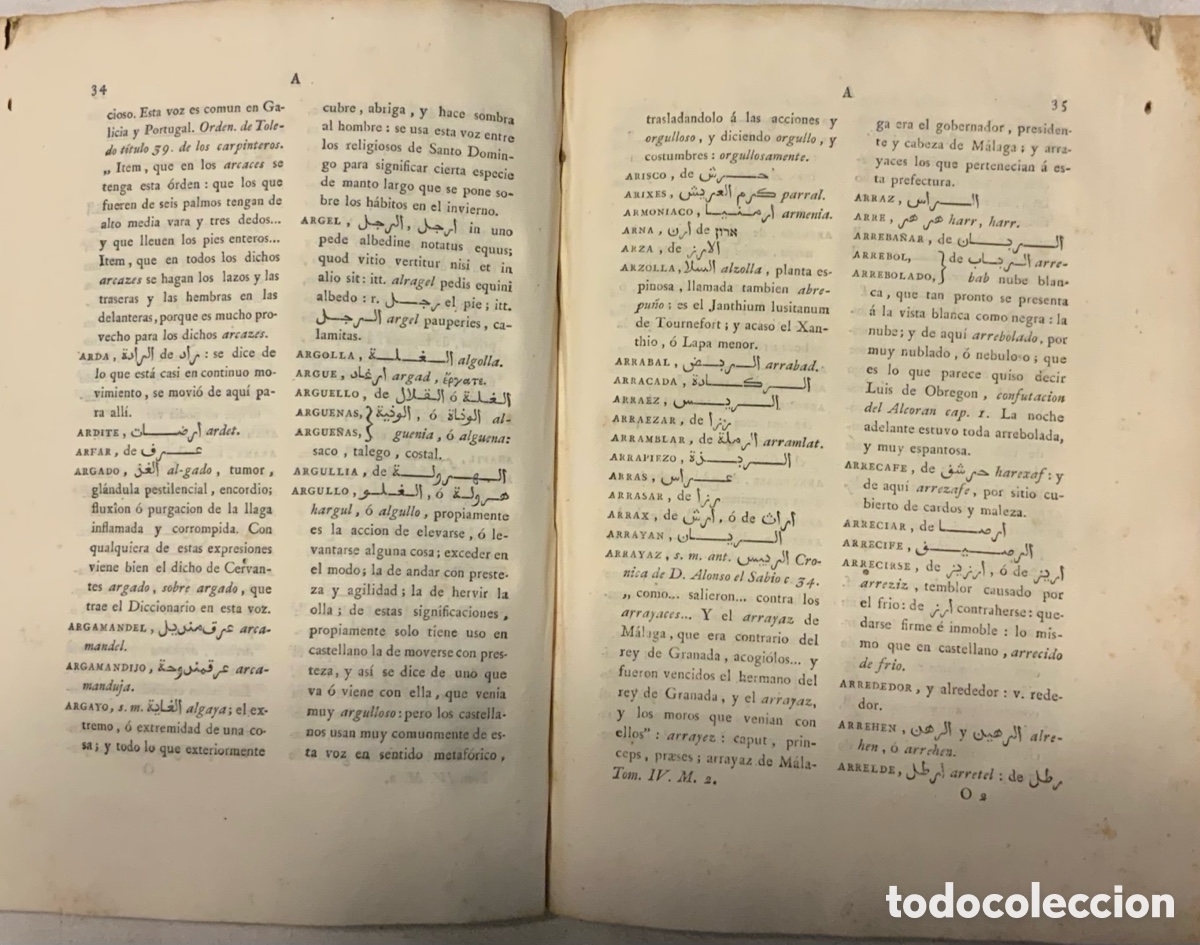 34
A
cioso. Esta voz es comun en Ga-
licia y Portugal. Orden. de Tole-
do título 39. de los carpinteros.
„ Item, que en los arcaces se
tenga esta órden : que los que
fueren de seis palmos tengan de
alto media vara y tres dedos...
y que lleuen los pies enteros...
Item, que en todos los dichos
arcazes se hagan los lazos y las
traseras y las hembras en las
delanteras, porque es mucho pro-
vecho para los dichos arcazes.
ARDA, الرادة de راد : se dice de
lo que está casi en continuo mo-
vimiento, se movió de aquí pa-
ra allí.
ARDITE, ارضات ardet.
ARFAR, de عرف
ARGADO, الغن al-gado, tumor,
glándula pestilencial, encordio;
fluxîon ó purgacion de la llaga
inflamada y corrompida. Con
qualquiera de estas expresiones
viene bien el dicho de Cervan-
tes argado, sobre argado, que
trae el Diccionario en esta voz.
ARGAMANDEL, عرق منديل arca-
mandel.
ARGAMANDIJO, عرقمندوحة arca-
manduja.
ARGAYO, s. m. الغاية algaya; el ex-
tremo, ó extremidad de una co-
sa; y todo lo que exteriormente
cubre, abriga, y hace sombra
al hombre : se usa esta voz entre
los religiosos de Santo Domin-
go para significar cierta especie
de manto largo que se pone so-
bre los hábitos en el invierno.
ARGEL, ارجل, الرجل in uno
pede albedine notatus equus;
quod vitio vertitur nisi et in
alio sit: itt. alragel pedis equini
albedo : r. رجل el pie; itt.
الرجل argel pauperies, ca-
lamitas.
ARGOLLA, الغلة algolla.
ARGUE, ارغاد argad, ἔργατε.
ARGUELLO, de القلال ó الغلة
ARGUENAS, } الونية ó الوناة, ó al-
ARGUEÑAS, } guenia, ó alguena:
saco, talego, costal.
ARGULLIA, de الهرولة
ARGULLO, الغلو, ó هرولة
hargul, ó algullo, propiamente
es la accion de elevarse, ó le-
vantarse alguna cosa; exceder en
el modo; la de andar con preste-
za y agilidad; la de hervir la
olla; de estas significaciones,
propiamente solo tiene uso en
castellano la de moverse con pres-
teza, y así se dice de uno que
va ó viene con ella, que venia
muy argulloso: pero los castella-
nos usan muy comunmente de es-
ta voz en sentido metafórico,
A
35
trasladandolo á las acciones y
orgulloso, y diciendo orgullo, y
costumbres: orgullosamente.
ARISCO, de حرش
ARIXES, كرم العريش parral.
ARMONIACO, ارمنيا armenia.
ARNA, ارن de ארון
ARZA, de الارز
ARZOLLA, السلا alzolla, planta es-
pinosa, llamada tambien abre-
puño: es el Janthium lusitanum
de Tournefort; y acaso el Xan-
thio, ó Lapa menor.
ARRABAL, الربض arrabad.
ARRACADA, الركادة
ARRAEZ, الريس
ARRAEZAR, de رزا
ARRAMBLAR, de الرملة arramlat.
ARRAPIEZO, الربزة
ARRAS, عراس
ARRASAR, de رزا
ARRAX, de ارش, ó de اراث
ARRAYAN, الريان
ARRAYAZ, s. m. ant. الرييس Cro-
nica de D. Alonso el Sabio c. 34.
„ como... salieron... contra los
arrayaces... Y el arrayaz de
Málaga, que era contrario del
rey de Granada, acogiólos... y
fueron vencidos el hermano del
rey de Granada, y el arrayaz,
y los moros que venian con
ellos" : arrayez : caput, prin-
ceps, præses; arrayaz de Mála-
Tom. IV. M. 2.
ga era el gobernador, presiden-
te y cabeza de Málaga; y arra-
yaces los que pertenecian á es-
ta prefectura.
ARRAZ, الراس
ARRE, هر هر harr, harr.
ARREBAÑAR, de الربان
ARREBOL, } de الرباب arre-
ARREBOLADO, } bab nube blan-
ca, que tan pronto se presenta
á la vista blanca como negra : la
nube; y de aquí arrebolado, por
muy nublado, ó nebuloso; que
es lo que parece quiso decir
Luis de Obregon, confutacion
del Alcoran cap. 1. La noche
adelante estuvo toda arrebolada,
y muy espantosa.
ARRECAFE, de حرشف harexaf: y
de aquí arrezafe, por sitio cu-
bierto de cardos y maleza.
ARRECIAR, de ارصا
ARRECIFE, الرصيف
ARRECIRSE, de ارزيز, ó de اريز
arreziz, temblor causado por
el frio: de ارز contraherse: que-
darse firme é inmoble : lo mis-
mo que en castellano, arrecido
de frio.
ARREDEDOR, y alrededor : v. rede-
dor.
ARREHEN, الرهن y الرهين alre-
hen, ó arrehen.
ARRELDE, ارطل arretel : de رطل
O 2
todocoleccion